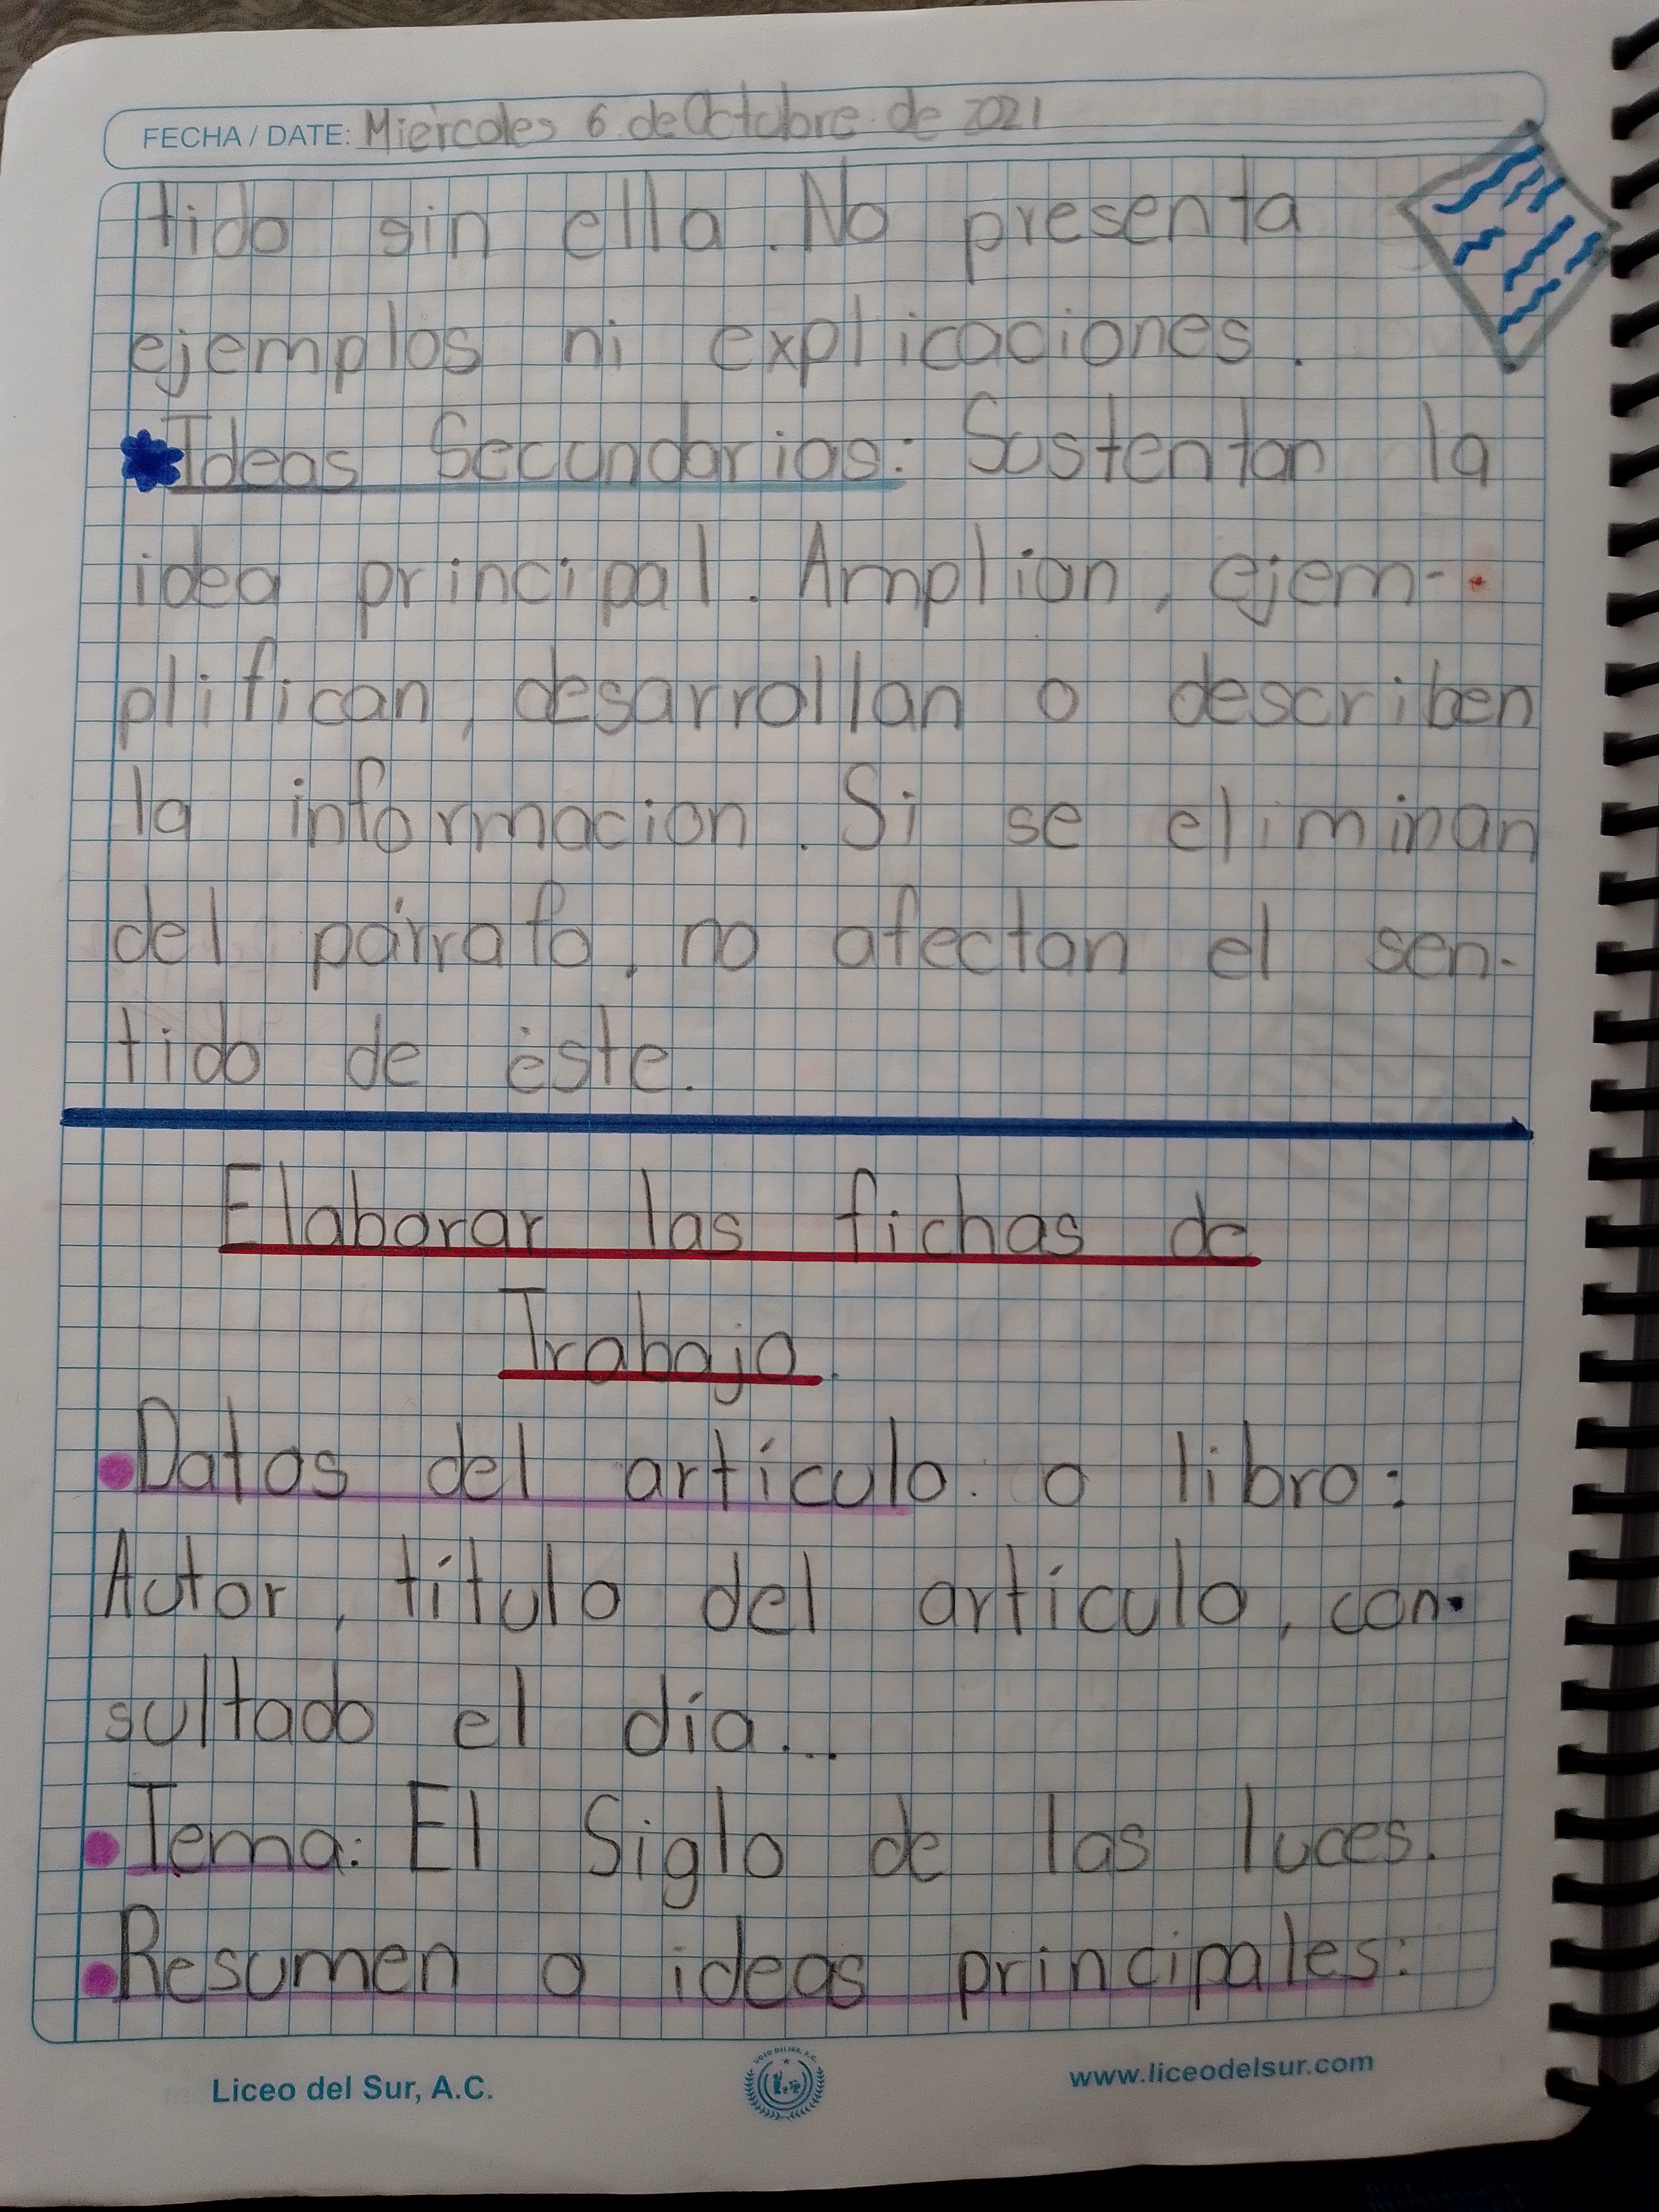 FECHA / DATE: Miércoles 6 de Octubre de 2021
tido sin ella. No presenta
ejemplos ni explicaciones.
Ideas Secundarias: Sustentan la
idea principal. Amplian, ejem-
plifican, desarrollan o describen
la informacion. Si se eliminan
del párrafo, no afectan el sen-
tido de éste.
Elaborar las fichas de
Trabajo.
Datos del artículo o libro:
Autor, título del artículo, con-
sultado el día...
Tema: El Siglo de las luces.
Resumen o ideas principales:
Liceo del Sur, A.C.
LICEO DEL SUR, A.C.
www.liceodelsur.com